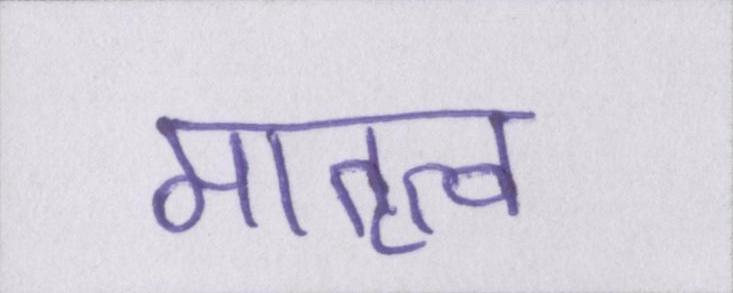 मातृत्व